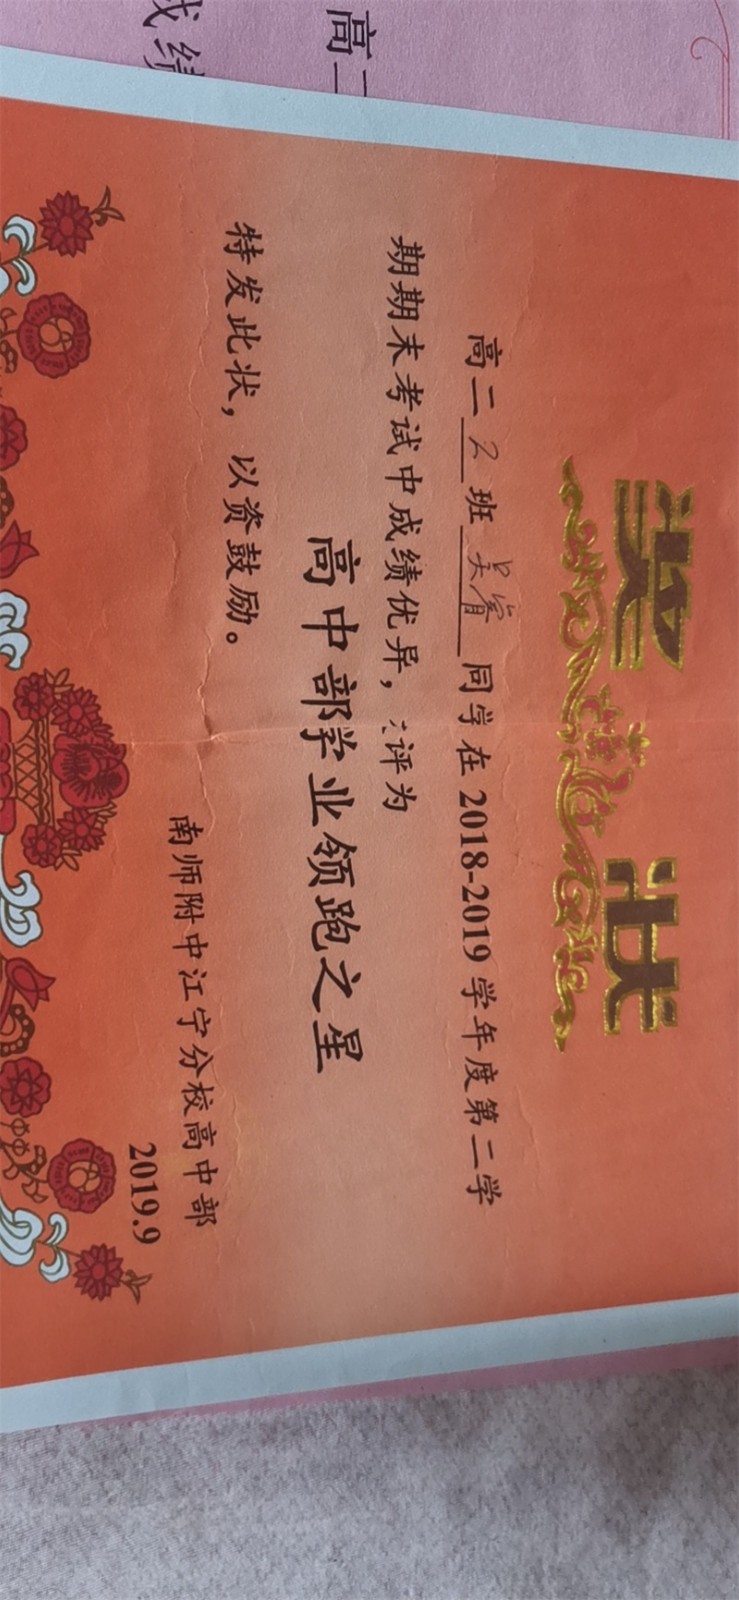 高二
成绩
奖状
高二 2 班 吴睿 同学在 2018-2019 学年度第二学
期期末考试中成绩优异，评为
高中部学业领跑之星
特发此状，以资鼓励。
南师附中江宁分校高中部
2019.9